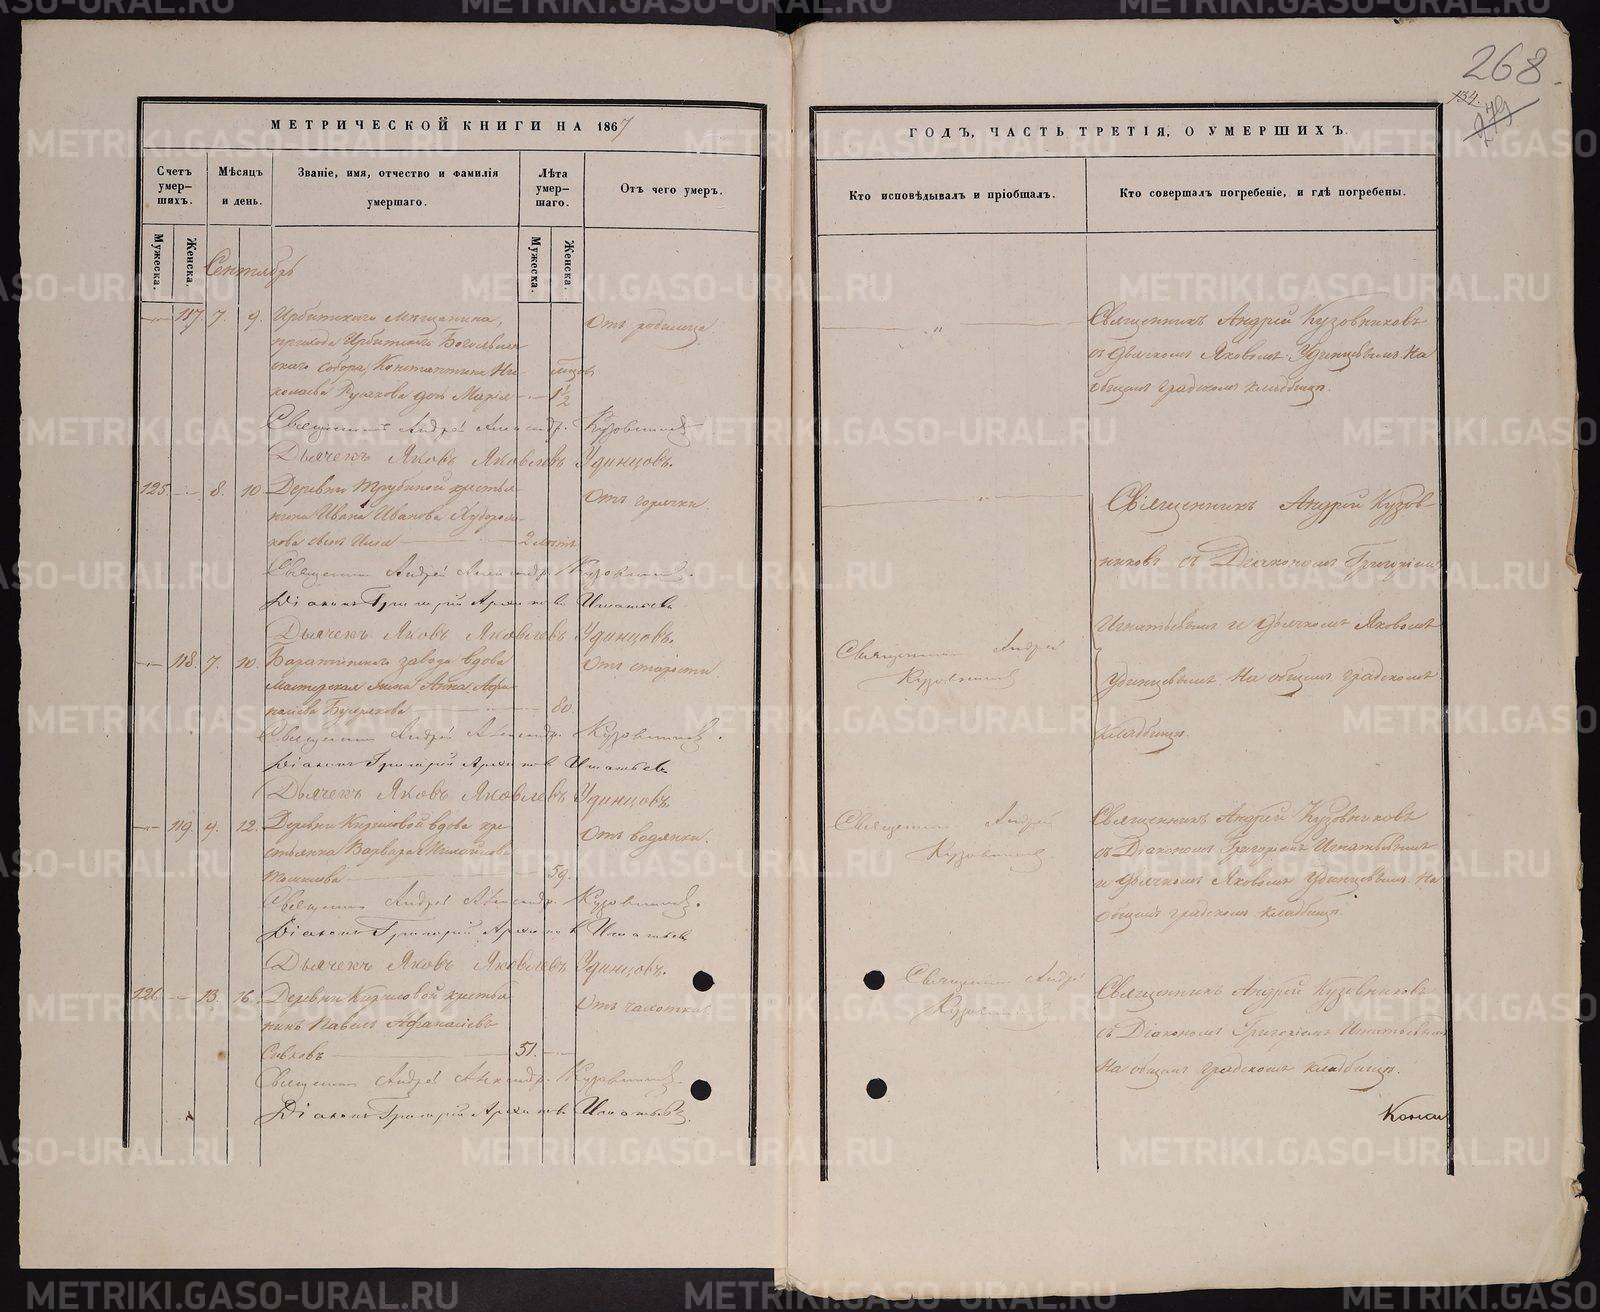 268
134.
279
МЕТРИЧЕСКОЙ КНИГИ НА 1867
ГОДЪ, ЧАСТЬ ТРЕТІЯ, О УМЕРШИХЪ.
Счетъ умер-шихъ.
Мѣсяцъ и день.
Званіе, имя, отчество и фамилія умершаго.
Лѣта умер-шаго.
Отъ чего умеръ.
Кто исповѣдывалъ и пріобщалъ.
Кто совершалъ погребеніе, и гдѣ погребены.
Мужеска.
Женска.
Мужеска.
Женска.
Сентябрь
117. 7. 9. Ирбитскаго Мѣщанина,
прихода Ирбитскаго Богоявлен-
скаго собора, Константина Ни-
колаева дочь Марія 1 1/2
Отъ родимца
Священникъ Андрей Кузовниковъ
съ дьячкомъ Яковомъ Удинцевымъ На
общемъ градскомъ кладбищѣ.
Священникъ Андрей Александр. Кузовниковъ
Дьячекъ Яковъ Яковлевъ Удинцовъ.
125. 8. 10. Деревни Трубиной крестья-
нина Ивана Иванова
сынъ 2 лѣтъ
Отъ горячки
Священникъ Андрей Александр. Кузовниковъ.
Діаконъ Григорій Игнатьевъ
Дьячекъ Яковъ Яковлевъ Удинцовъ.
Священникъ Андрей Кузов-
никовъ съ Діакономъ Григоріемъ
Игнатьевымъ и дьячкомъ Яковомъ
Удинцевымъ На общемъ градскомъ
кладбищѣ.
118. 7. 10. завода вдова
Мастерская жена Анна Афа-
насіева 80.
Отъ старости
Священникъ Андрей
Кузовниковъ
Священникъ Андрей Александр. Кузовниковъ.
Діаконъ Григорій Игнатьевъ
Дьячекъ Яковъ Яковлевъ Удинцовъ
119. 9. 12. Деревни Кириловой вдова кре-
стьянка Варвара
59.
Отъ водянки.
Священникъ Андрей
Кузовниковъ.
Священникъ Андрей Кузовниковъ
съ Діакономъ Григоріемъ Игнатьевымъ
и дьячкомъ Яковомъ Удинцевымъ. На
общемъ градскомъ кладбищѣ.
Священникъ Андрей Александр. Кузовниковъ.
Діаконъ Григорій Игнатьевъ
Дьячекъ Яковъ Яковлевъ Удинцовъ.
126. 13. 16. Деревни Кириловой крестья-
нинъ Павелъ Афанасіевъ
51.
Отъ чахотки
Священникъ Андрей
Кузовниковъ
Священникъ Андрей Кузовниковъ
съ Діакономъ Григоріемъ Игнатьевымъ
На общемъ градскомъ кладбищѣ.
Священникъ Андрей Александр. Кузовниковъ.
Діаконъ Григорій Игнатьевъ.
METRIKI.GASO-URAL.RU